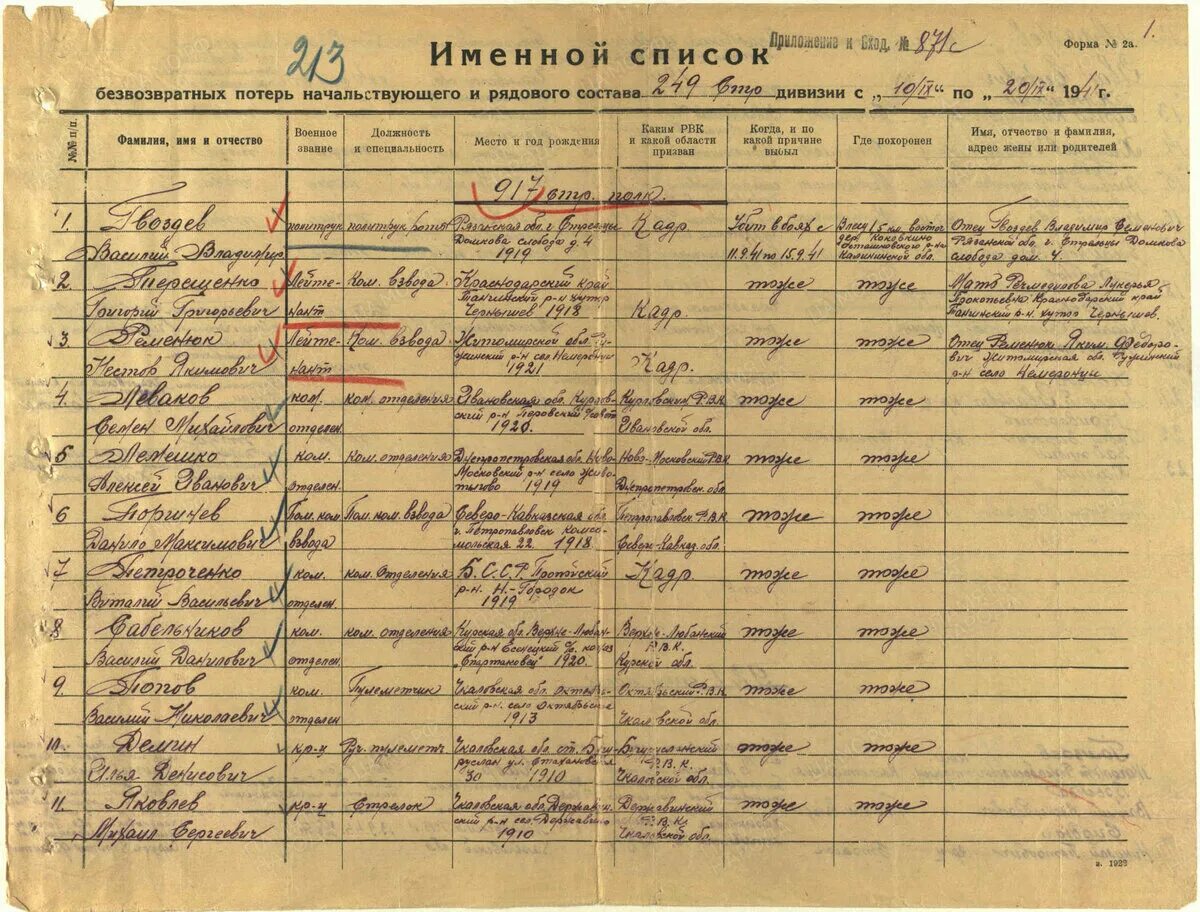 1.
Приложение к Вход. № 871с
Форма № 2а.
213
Именной список
безвозвратных потерь начальствующего и рядового состава 249 Стр дивизии с „10/IX“ по „20/IX“ 1941г.
№№ п/п.
Фамилия, имя и отчество
Военное звание
Должность и специальность
Место и год рождения
Каким РВК и какой области призван
Когда, и по какой причине выбыл
Где похоронен
Имя, отчество и фамилия, адрес жены или родителей
917 стр. полк.
1. Гвоздев
Василий Владимир.
политрук
политрук роты
Рязанская обл. г. Стрельцы
Домкова слобода д. 4
1919
Кадр.
Убит в боях с
11.9.41 по 15.9.41
5 км. восточ
дер. Коковкино
Осташковского р-на
Калининской обл.
Отец Гвоздев Владимир Семанович
Рязанской обл. г. Стрельцы Домкова
слобода дом. 4.
2. Терещенко
Григорий Григорьевич
Лейте-
нант
Ком. взвода
Краснодарский край
р-н хутор
Чернышев 1918
Кадр.
тоже
тоже
Мать Лукерья
Прокотьевна Краснодарский край
р-н. хутор Чернышев.
3. Ременюк
Нестор Якимович
Лейте-
нант
Ком. взвода
Житомирской обл. Ру-
жинский р-н сел Немеренци
1921
Кадр.
тоже
тоже
Отец Ременюк Яким Федоро-
вич Житомирская обл. Ружинский
р-н село Немеренци
4. Леваков
Семен Михайлович
ком.
отделен.
ком. отделения
Ивановская обл. Курлов-
ский р-н
1920.
Курловским Р.В.К
Ивановской обл.
тоже
тоже
5 Лемешко
Алексей Иванович
ком.
отделен.
ком. отделения
Днепропетровская обл. Ново-
Московский р-н село Живо-
тыгово 1919
Ново-Московский РВК
Днепропетровск. обл
тоже
тоже
6 Торгинев
Данило Максимович
Пом. ком.
взвода
Пом. ком. взвода
Северо-Кавказская обл
г. Петропавловск Комсо-
мольская 22. 1918
Петропавловск Р.В.К
Северо-Кавказ. обл.
тоже
тоже
7 Петроченко
Виталий Васильевич
ком.
отделен.
ком. отделения
Б.С.С.Р.
р-н. Н.-Городок
1919
Кадр.
тоже
тоже
8 Сабельников
Василий Данилович
ком.
отделен.
ком. отделения
Курская обл. Верхне-Любан-
ский р-н
„Спартаковец“ 1920.
Верхне-Любанский
Р.В.К.
Курской обл.
тоже
тоже
9. Попов
Василий Николаевич
ком.
отделен
Пулеметчик
Чкаловская обл. Октябрь-
ский р-н. село Октябрьское
1913
Октябрьский Р.В.К
Чкаловской обл.
тоже
тоже
10. Демин
Илья Денисович
кр-ц
Руч. пулеметч
Чкаловская обл. ст. Бугу-
руслан ул. Стахановская
30 1910
Бугурусланский
Р.В.К.
Чкаловской обл.
тоже
тоже
11. Яковлев
Михаил Сергеевич
кр-ц
Стрелок
Чкаловская обл. Державин-
ский р-н сел. Державино
1910
Державинский
Р.В.К.
Чкаловской обл.
тоже
тоже
з. 1923